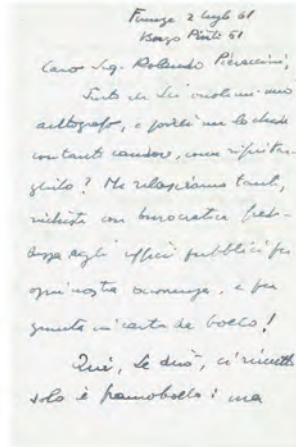 Firenze 2 luglio 61
Borgo Pinti 61
Caro Sig. Rolando Pieraccini,
autografo, e poiché me lo chiede
con tanto candore, come rifiutar-
glielo? Ne rilasciamo tanti,
richiesti con burocratica fred-
dezza dagli uffici pubblici per
ogni nostra occorrenza, e per
giunta in carta da bollo!
Qui, Le dirò, ci rimetto
solo il francobollo: ma